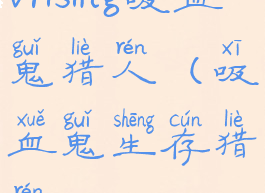 吸血
guǐ liè rén xī
鬼猎人（吸
xuě guǐ shēng cún liè
血鬼生存猎
rén